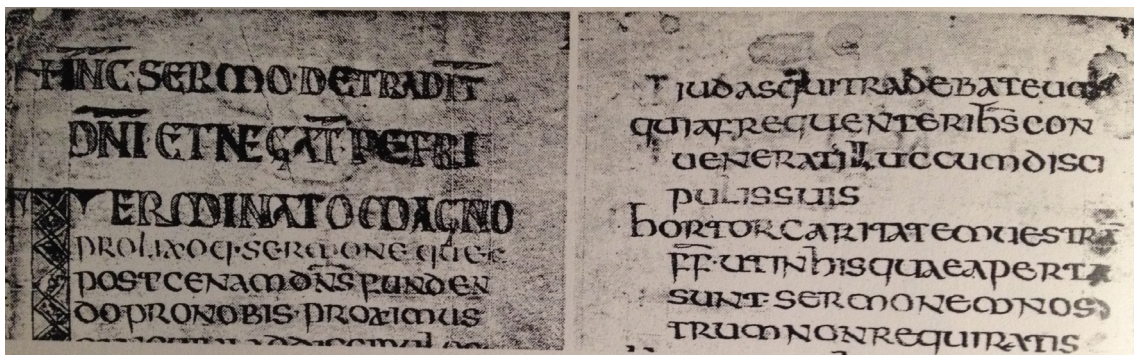 HINC·SERMO·DETRADIT̄
DN̄I·ETNEGAT̄·PETRI
TERMINATOMAGNO
PROLIXOQ·SERMONE QUE
POSTCENAM DN̄S FUNDEN
DO PRONOBIS·PROXIMUS
IUDASQUITRADEBATEU
QUIAFREQUENTERIH̄SCON
UENERATILLUCCUMDISCI
PULISSUIS
hORTORCARITATEMUESTRĀ
F̄F̄·UTINhISQUAEAPERTA
SUNT·SERMONEMNOS
TRUMNONREQUIRATIS